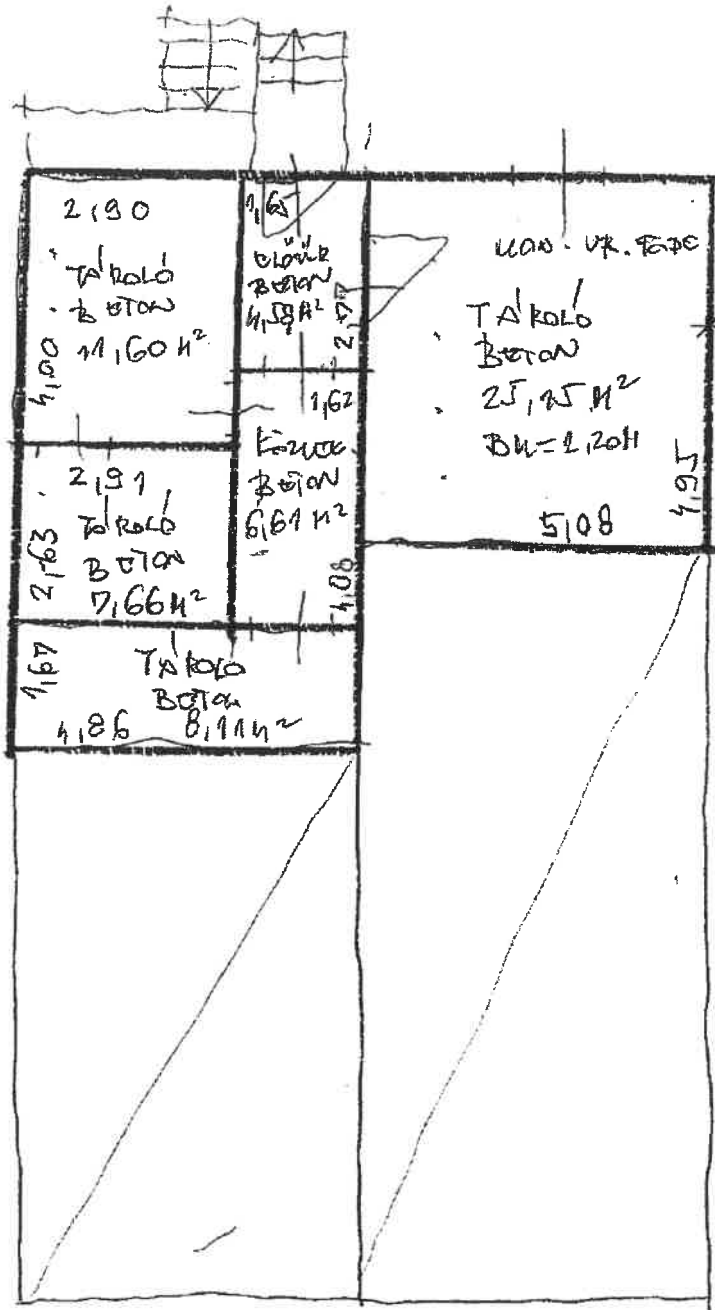 2,90
TÁROLÓ
BETON
11,60 M²
4,00
1,65
ELŐTÉR
BETON
4,58 M²
2,77
TÁROLÓ
BETON
25,15 M²
BM=1,20M
4,95
5,08
1,62
KÖZLEK.
BETON
6,61 M²
4,08
2,91
TÁROLÓ
BETON
7,66 M²
2,63
TÁROLÓ
BETON
1,67
4,86 8,11 M²